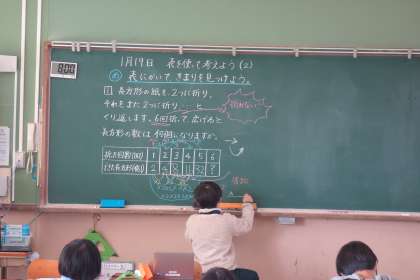 1月19日 表を使って考えよう(2)
め 表にかいて、きまりを見つけよう。
8:00
1 長方形の紙を2つに折り、
それをまた2つに折り…と
くり返します。6回折って、広げると
長方形の数は何個になりますか。
折れない…
折った回数(回) 1 2 3 4 5 6
できた長方形(個) 2 4 8 16 32 ?